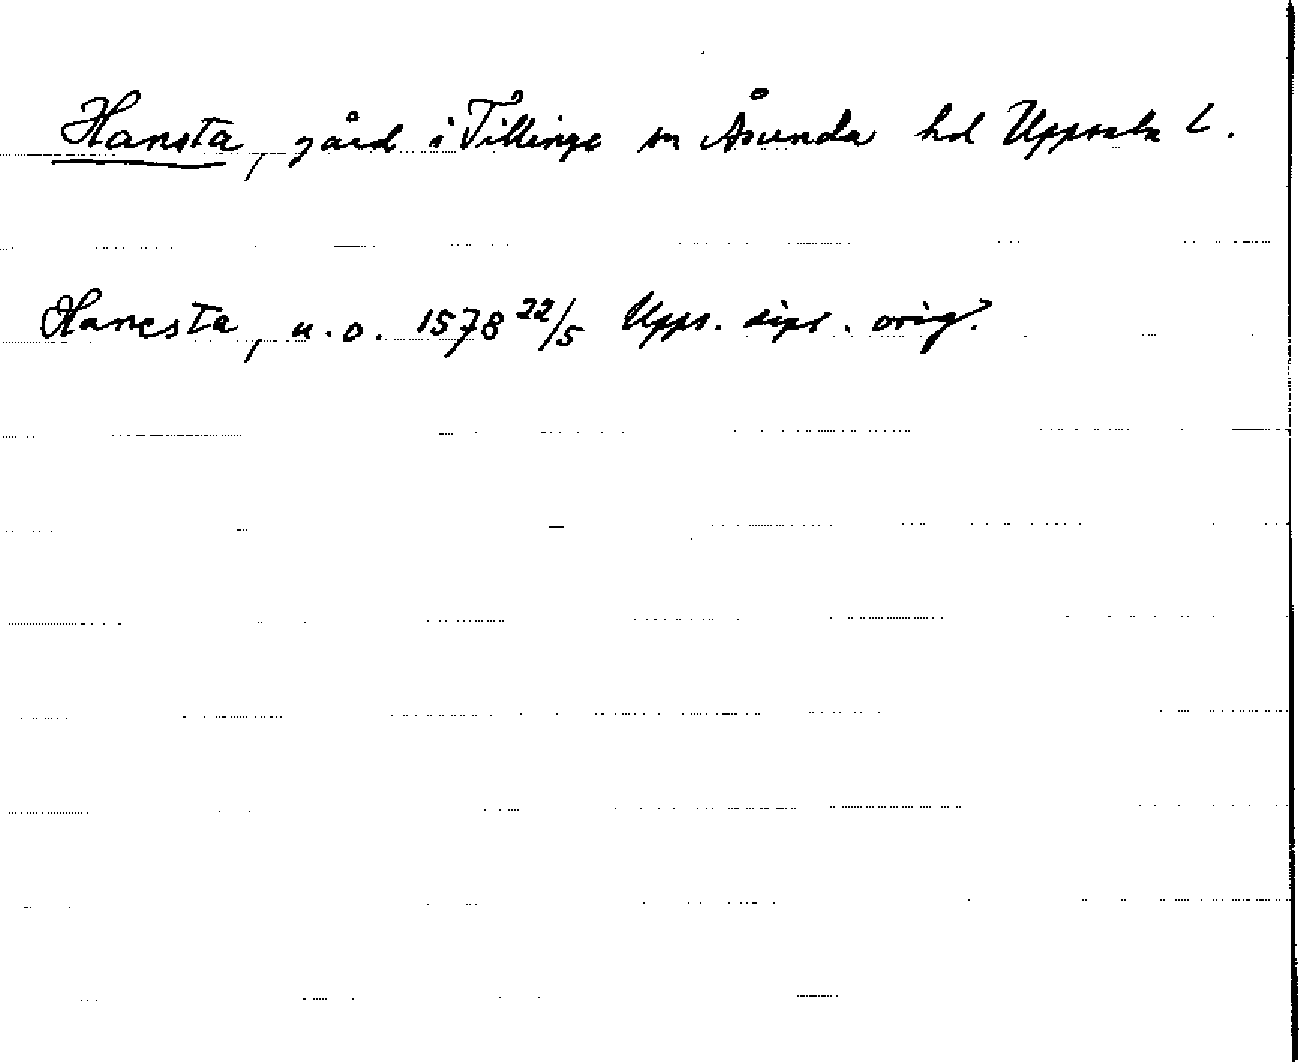 Hansta, gård i Tillinge sn Åsunda hd Uppsala l.
Hanesta, u.o. 1578 22/5 Upps. dipl. orig.